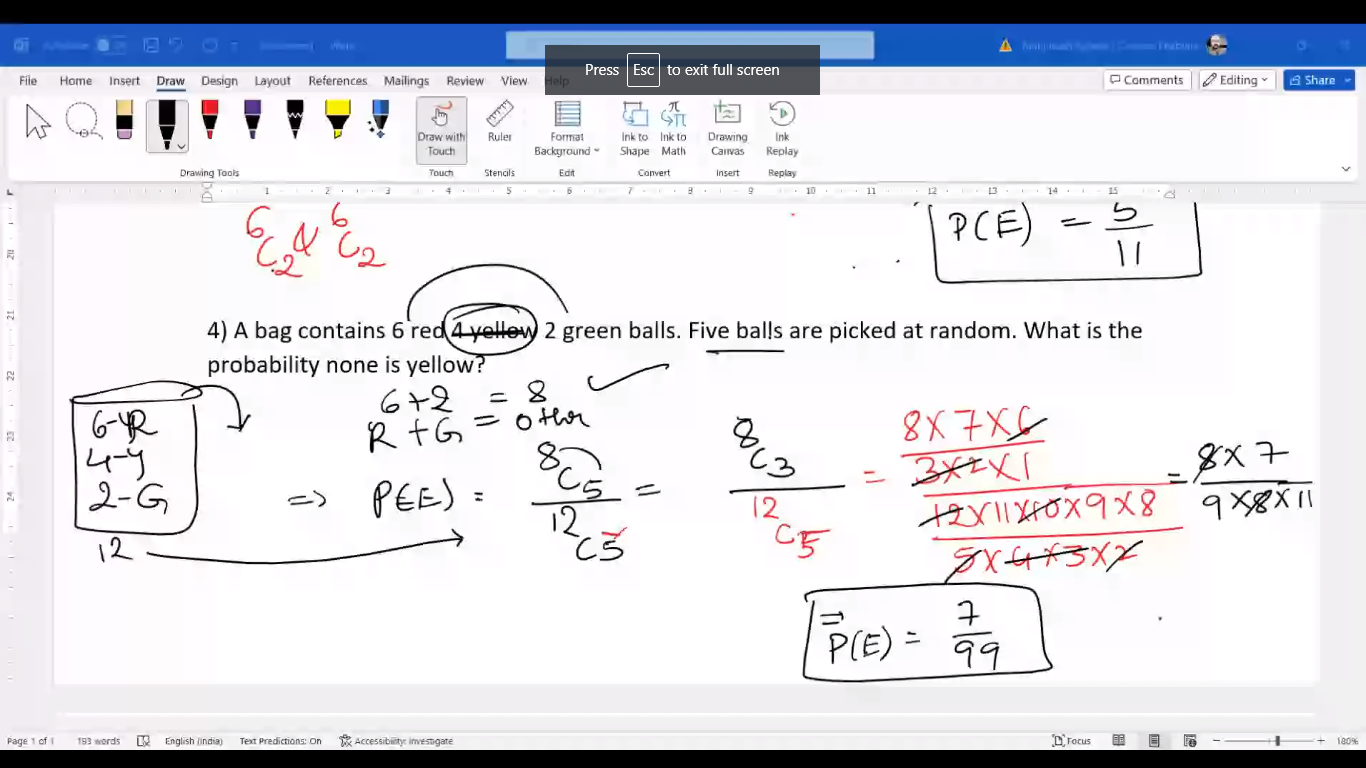 Press Esc to exit full screen
File Home Insert Draw Design Layout References Mailings Review View Help
Comments Editing Share
Draw with Touch
Ruler
Format Background
Ink to Shape
Ink to Math
Drawing Canvas
Ink Replay
Drawing Tools Touch Stencils Edit Convert Insert Replay
1 2 3 4 5 6 7 8 9 10 11 12 13 14 15
6C2 & 6C2
P(E) = 5/11
4) A bag contains 6 red 4 yellow 2 green balls. Five balls are picked at random. What is the
probability none is yellow?
6+2 = 8
R+G = other
4-Y
2-G
12
=> P(E) = 8C5 / 12C5 = 8C3 / 12C5 = 8×7×6 / 3×2×1 / 12×11×10×9×8 / 5×4×3×2 = 8×7 / 9×8×11
=> P(E) = 7/99
20
21
22
23
24
Page 1 of 1 193 words English (India) Text Predictions: On Accessibility: Investigate Focus 180%